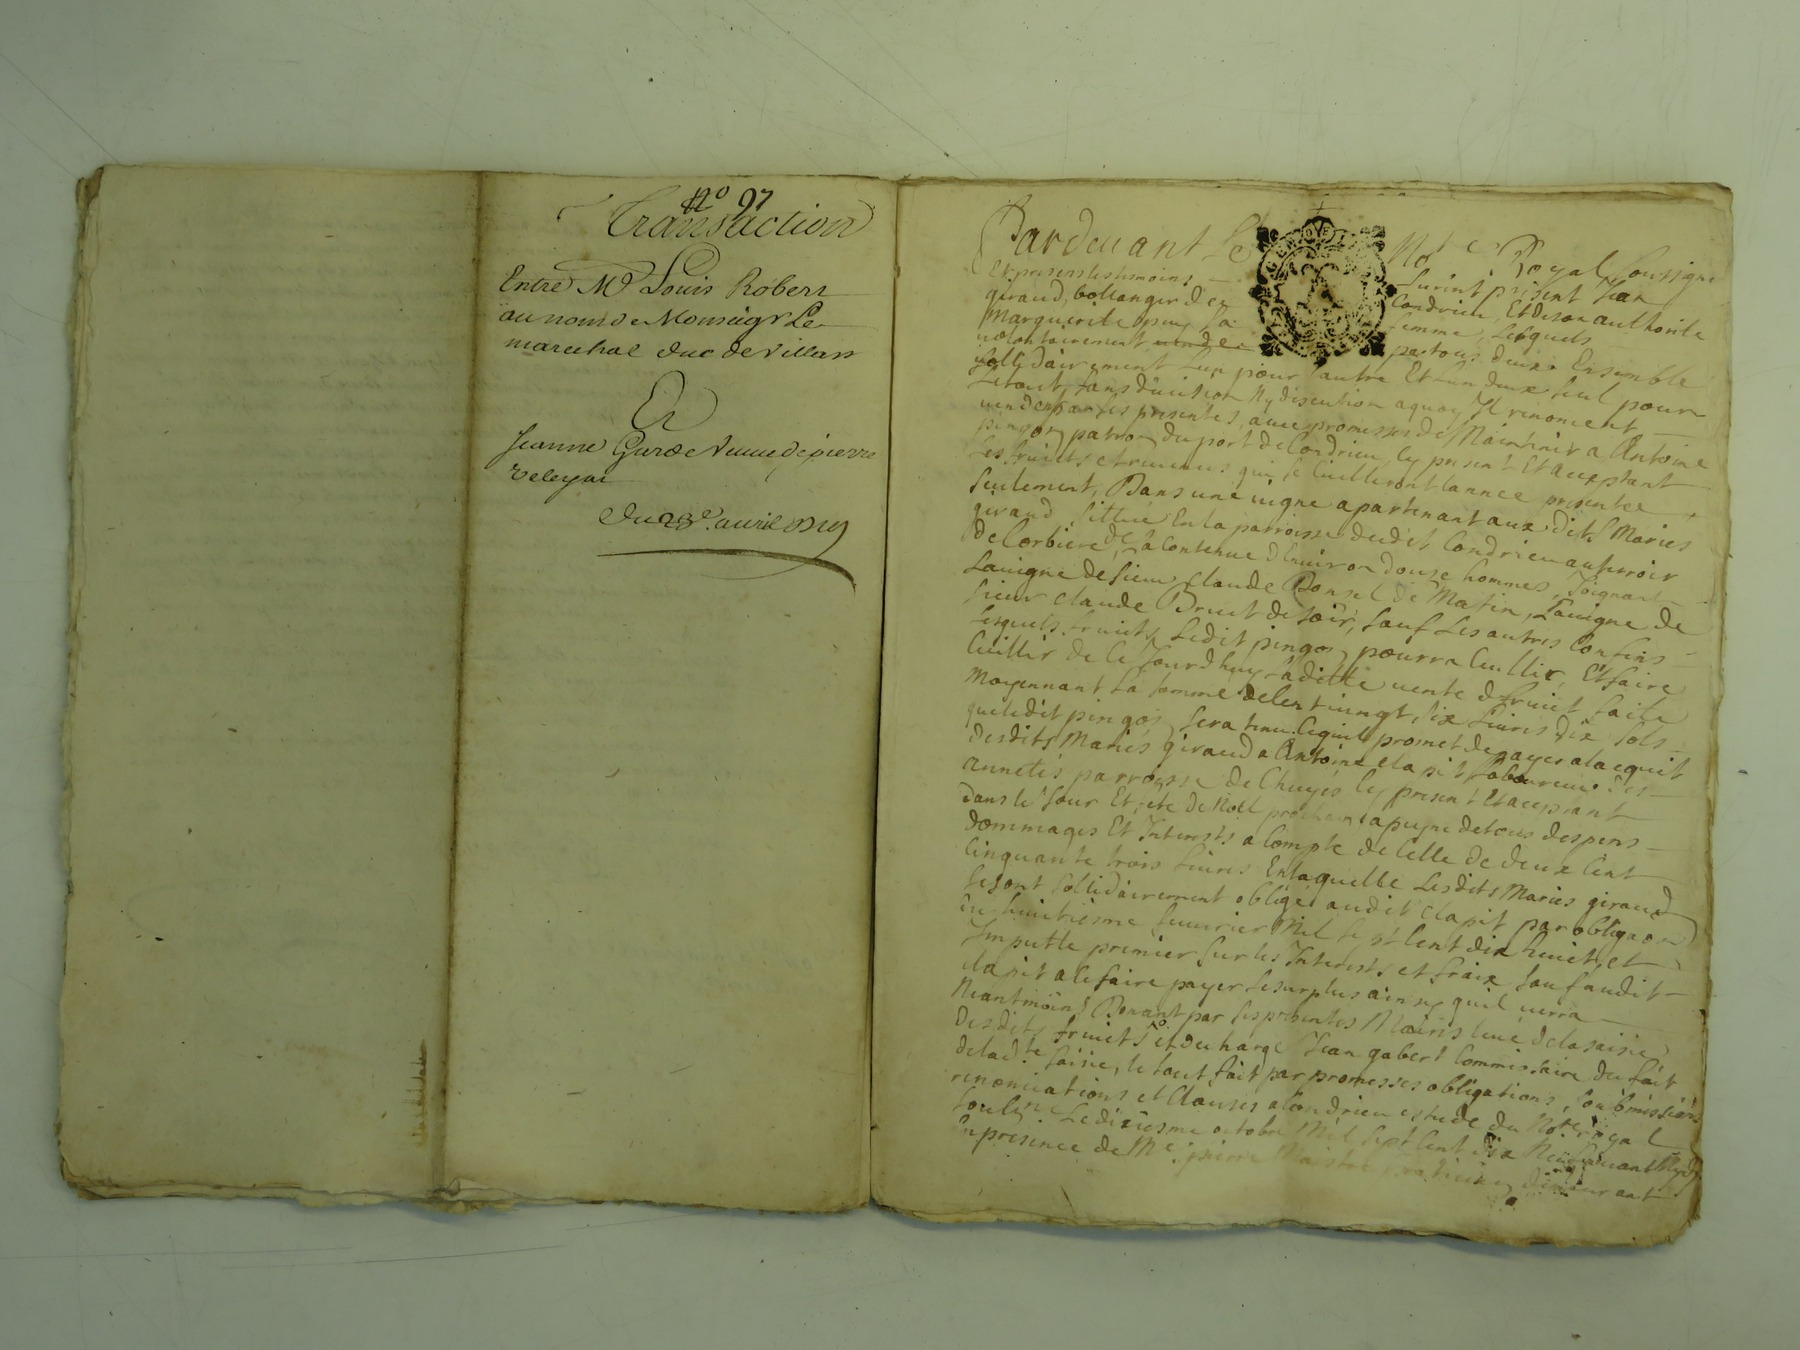 n.° 97
Transaction
Entre M.r Louis Robert
au nom de Monseigr Le
marechal duc de Villars
Et
Jeanne Garde veuve de pierre
Veleyne
du 28e. avril 1719
Pardevant Le Not.re Royal soussigné
Et presens les tesmoins furent present Jean
giraud, bollanger de Condrieu, Et de son authorité
Marguerite puy sa femme, Lesquels
volontairement par tous deux Ensemble
sollidairement Lun pour lautre Et Lun deux seul pour
Le tout, sans division Ny discution aquoy Il renoncent
vendent par les presentes, avec promesses de Maintenir a Antoine
pingon patron du port de Condrieu, Cy present Et acceptant
Les fruicts et revenus qui se Cuilliront lannee presente
seulement, Dans une vigne apartenant aux dits Maries
giraud, sittuée En la parroisse dudit Condrieu au terroir
de Corbiere, de la Contenue d'Environ douze hommes, Joignant
La vigne de sieur Claude Bonnel de Matin, La vigne de
sieur Claude Bruet de soir, sauf Les autres Confins
Lesquels fruicts Ledit pingon pourra Cuillir, Et faire
Cuillir de Ce Jourdhuy, Ladite vente de fruict faite
Moyennant La somme de Cent vingt six Livres dix sols
que ledit pingon sera tenu Ce quil promet de payer a lacquit
desdits Maries giraud a Antoine Clapit Laboureur des
annetés parroisse de Chuyes Cy present Et acceptant
dans le Jour Et fete de Noel prochain a peyne de tous despens
dommages Et Interests a Compte de Celle de deux Cent
Cinquante trois Livres En laquelle Lesdits Maries giraud
se sont sollidairement obligé audit Clapit par obligaon
du huitiesme fevvrier Mil sept Cent dix huict, et
Imputtle premier sur les Interests et fraix sauf audit
Clapit a se faire payer Le surplus ainsy quil verra
Neantmoins Donant par les presentes Mainlevée de la saisie
desdits fruicts et decharge Jean gabert Commissaire du fait
de lad.te saisie, le tout fait par promesses obligations, soubmissions
renonciations et Clauses a Condrieu estude du Not.re royal
soub.né Le dixiesme octobre Mil sept Cent dix Neuf avant Mydy
En presence de M.e pierre Maistre praticien demeurant